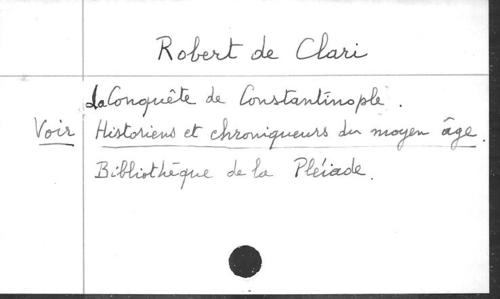 Robert de Clari
La Conquête de Constantinople.
Voir Historiens et chroniqueurs du moyen âge.
Bibliothèque de la Pléiade.